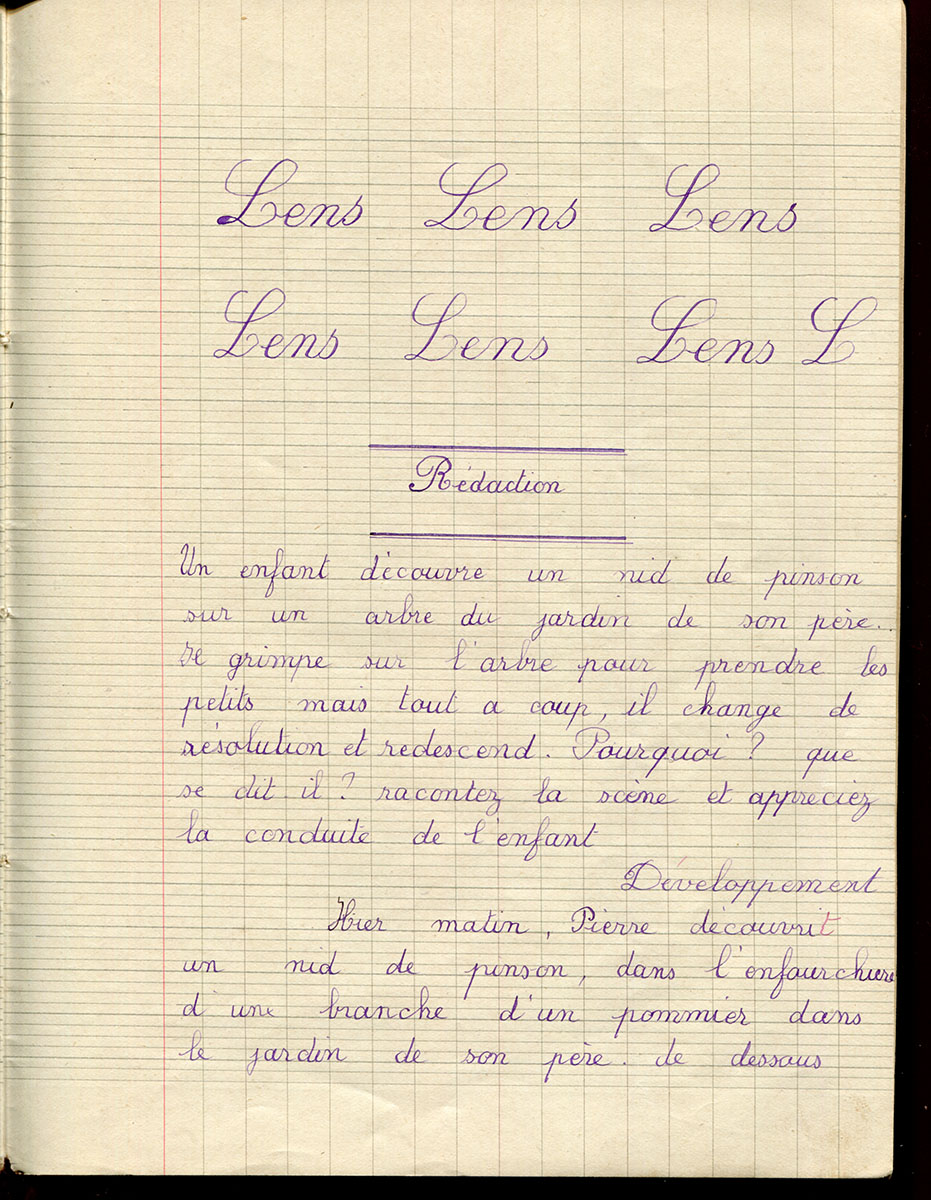 Lens Lens Lens
Lens Lens Lens L
Rédaction
Un enfant découvre un nid de pinson
sur un arbre du jardin de son père.
Il grimpe sur l'arbre pour prendre les
petits mais tout a coup, il change de
résolution et redescend. Pourquoi ? que
se dit il ? racontez la scène et appreciez
la conduite de l'enfant
Développement
Hier matin, Pierre découvrit
un nid de pinson, dans l'enfourchure
d'une branche d'un pommier dans
le jardin de son père. de dessous